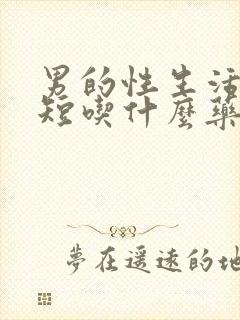 男的性生活
短喫什麼藥
夢在遥遠的地